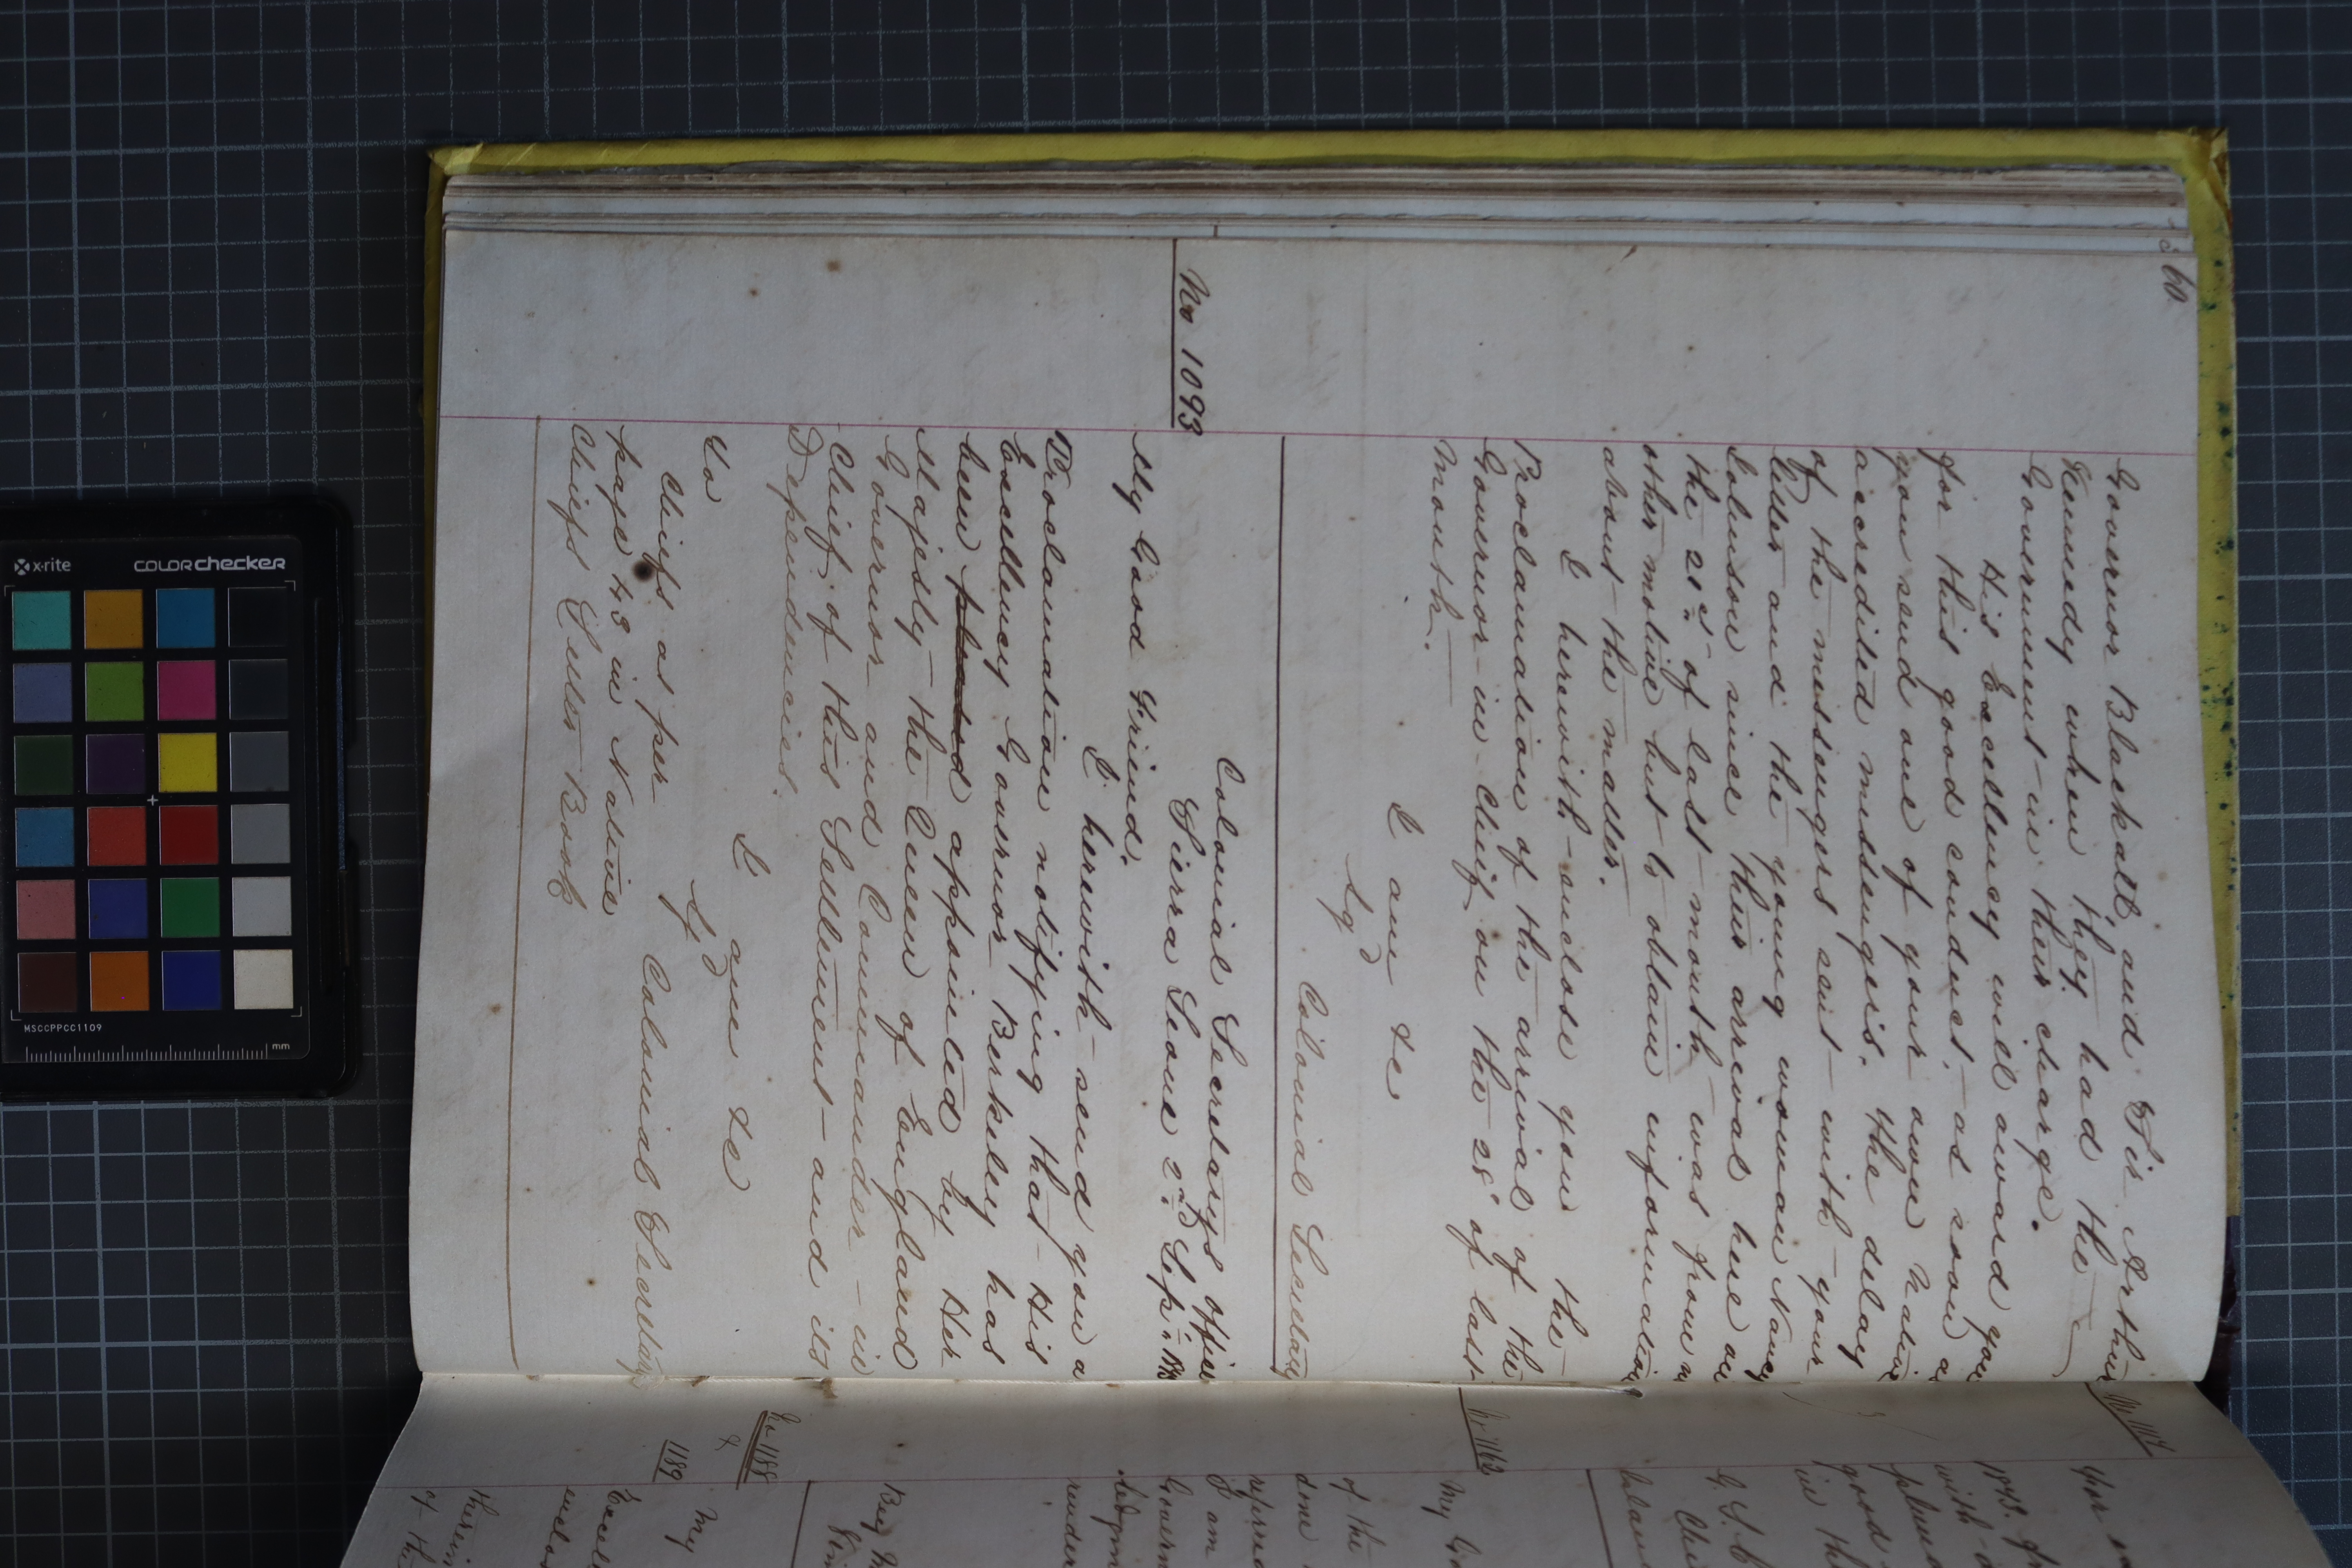 60
Governor Blackall, and Sir Arthur
Kennedy when they had the
Government in their charge.
His Excellency will award you
for this good conduct, as soon as
you send one of your own native
accredited messengers. The delay
of the messengers sent with your
letter and the young woman Nancy
Johnson since their arrival here on
the 21st of last month was from no
other motive but to obtain information
about the matter.
I herewith enclose you the
Proclamation of the arrival of the
Governor-in-Chief on the 28th of last
month.
I am &c
Sgd
Colonial Secretary
No 1093
Colonial Secretary's Office
Sierra Leone 2nd Sepr
My Good Friend.
I herewith send you a
Proclamation notifying that His
Excellency Governor Berkeley has
been placed appointed by Her
Majesty the Queen of England
Governor and Commander-in
Chief of this Settlement and its
Dependencies.
I am &c
Sgd
Colonial Secretary
To
Chiefs as per
page 43 in Native
Chiefs Letter Book
No 1117
1873.
with
good
in the
No 1162
My
of the
done
I am
render
No 1188
&
1189
My
Excell
enclos
therein
of the
x-rite
colorchecker
MSCCPPCC1109
mm